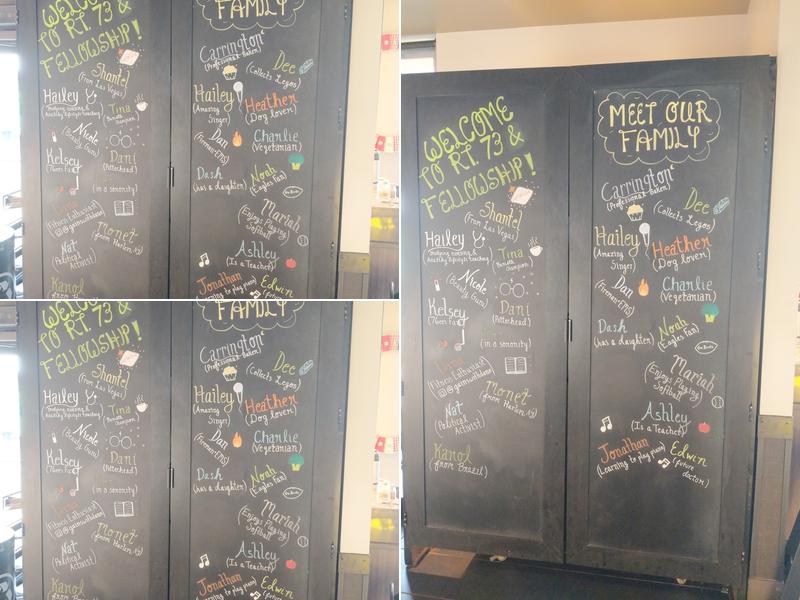 WELCOME
TO RT. 73 &
FELLOWSHIP!
Shantel
(from Las Vegas)
Hailey
Tina
Nicole
(Beauty Guru)
Kelsey
(76ers Fan)
Dani
(Potterhead)
(in a sorority)
(Fitness Enthusiast)
Monet
(from Harlem, NY)
Nat
(Political
Activist)
Kanol
(from Brazil)
MEET OUR
FAMILY
Carrington
(Professional Baker)
Dee
(Collects Legos)
Hailey
(Amazing
Singer)
Heather
(Dog lover)
Dan
(Former EMS)
Charlie
(Vegetarian)
Dash
(has a daughter)
Noah
(Eagles Fan)
Mariah
(Enjoys Playing
Softball)
Ashley
(Is a Teacher)
Jonathan
(Learning to play piano)
Edwin
(future
doctor)